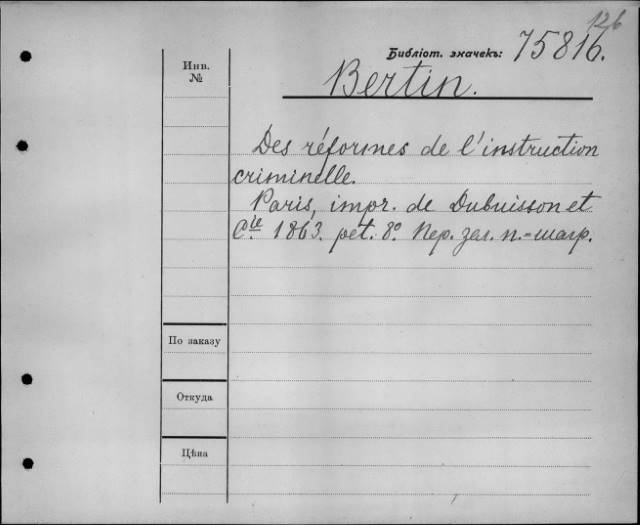 126
Библіот. значекъ: 75816.
Инв.
№
Bertin.
Des réformes de l'instruction
criminelle.
Paris, impr. de Dubuisson et
C.ie 1863. pet. 8º. Пер. зел. п.-шагр.
По заказу
Откуда
Цѣна